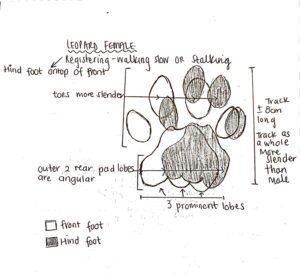 LEOPARD FEMALE
Registering-walking slow or stalking
Hind foot ontop of front
toes more slender
Track
± 8cm
long
Track as
a whole
more
slender
than
male
outer 2 rear pad lobes
are angular
3 prominent lobes
front foot
Hind foot